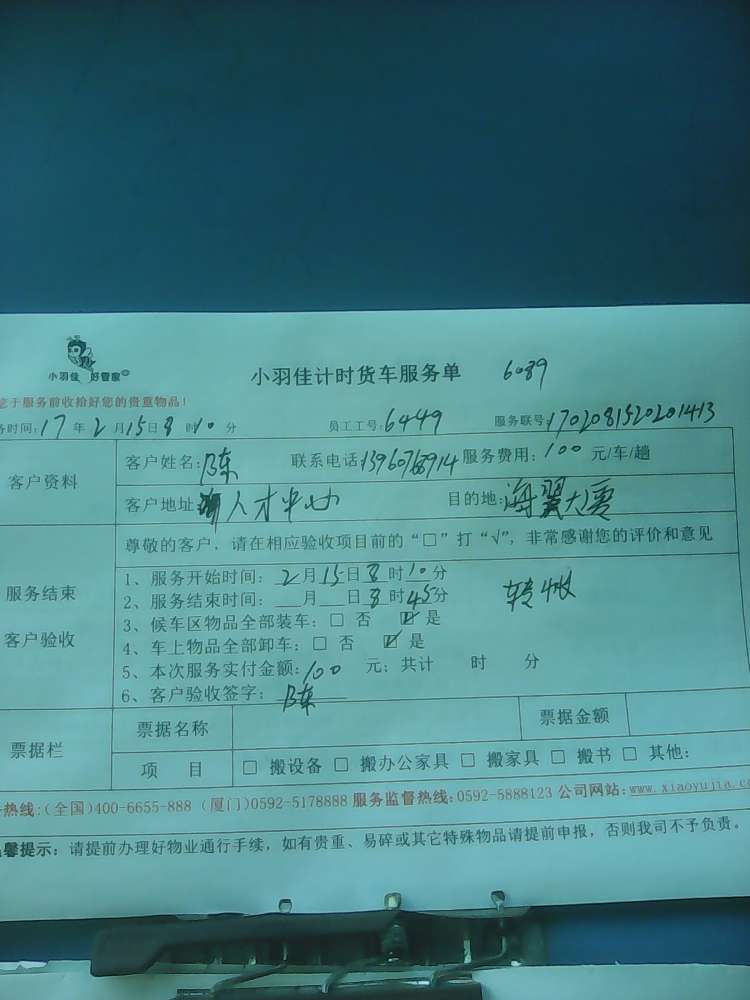 小羽佳 好管家
小羽佳计时货车服务单 6089
于服务前收拾好您的贵重物品！
时间：17年2月15日8时10分 员工工号：6449 服务联号：1702081520201413
客户资料
客户姓名：陈 联系电话：13960768914 服务费用：100 元/车/趟
客户地址 人才中心 目的地：海翼大厦
尊敬的客户，请在相应验收项目前的“□”打“√”，非常感谢您的评价和意见
服务结束
客户验收
1、服务开始时间：2月15日8时10分
2、服务结束时间：___月___日8时45分 转收
3、候车区物品全部装车：□ 否 ☑ 是
4、车上物品全部卸车：□ 否 ☑ 是
5、本次服务实付金额：100 元；共计 时 分
6、客户验收签字：陈
票据栏
票据名称 票据金额
项 目 □ 搬设备 □ 搬办公家具 □ 搬家具 □ 搬书 □ 其他：
热线：(全国)400-6655-888 (厦门)0592-5178888 服务监督热线：0592-5888123 公司网站：www.xiaoyujia.c
馨提示：请提前办理好物业通行手续，如有贵重、易碎或其它特殊物品请提前申报，否则我司不予负责。